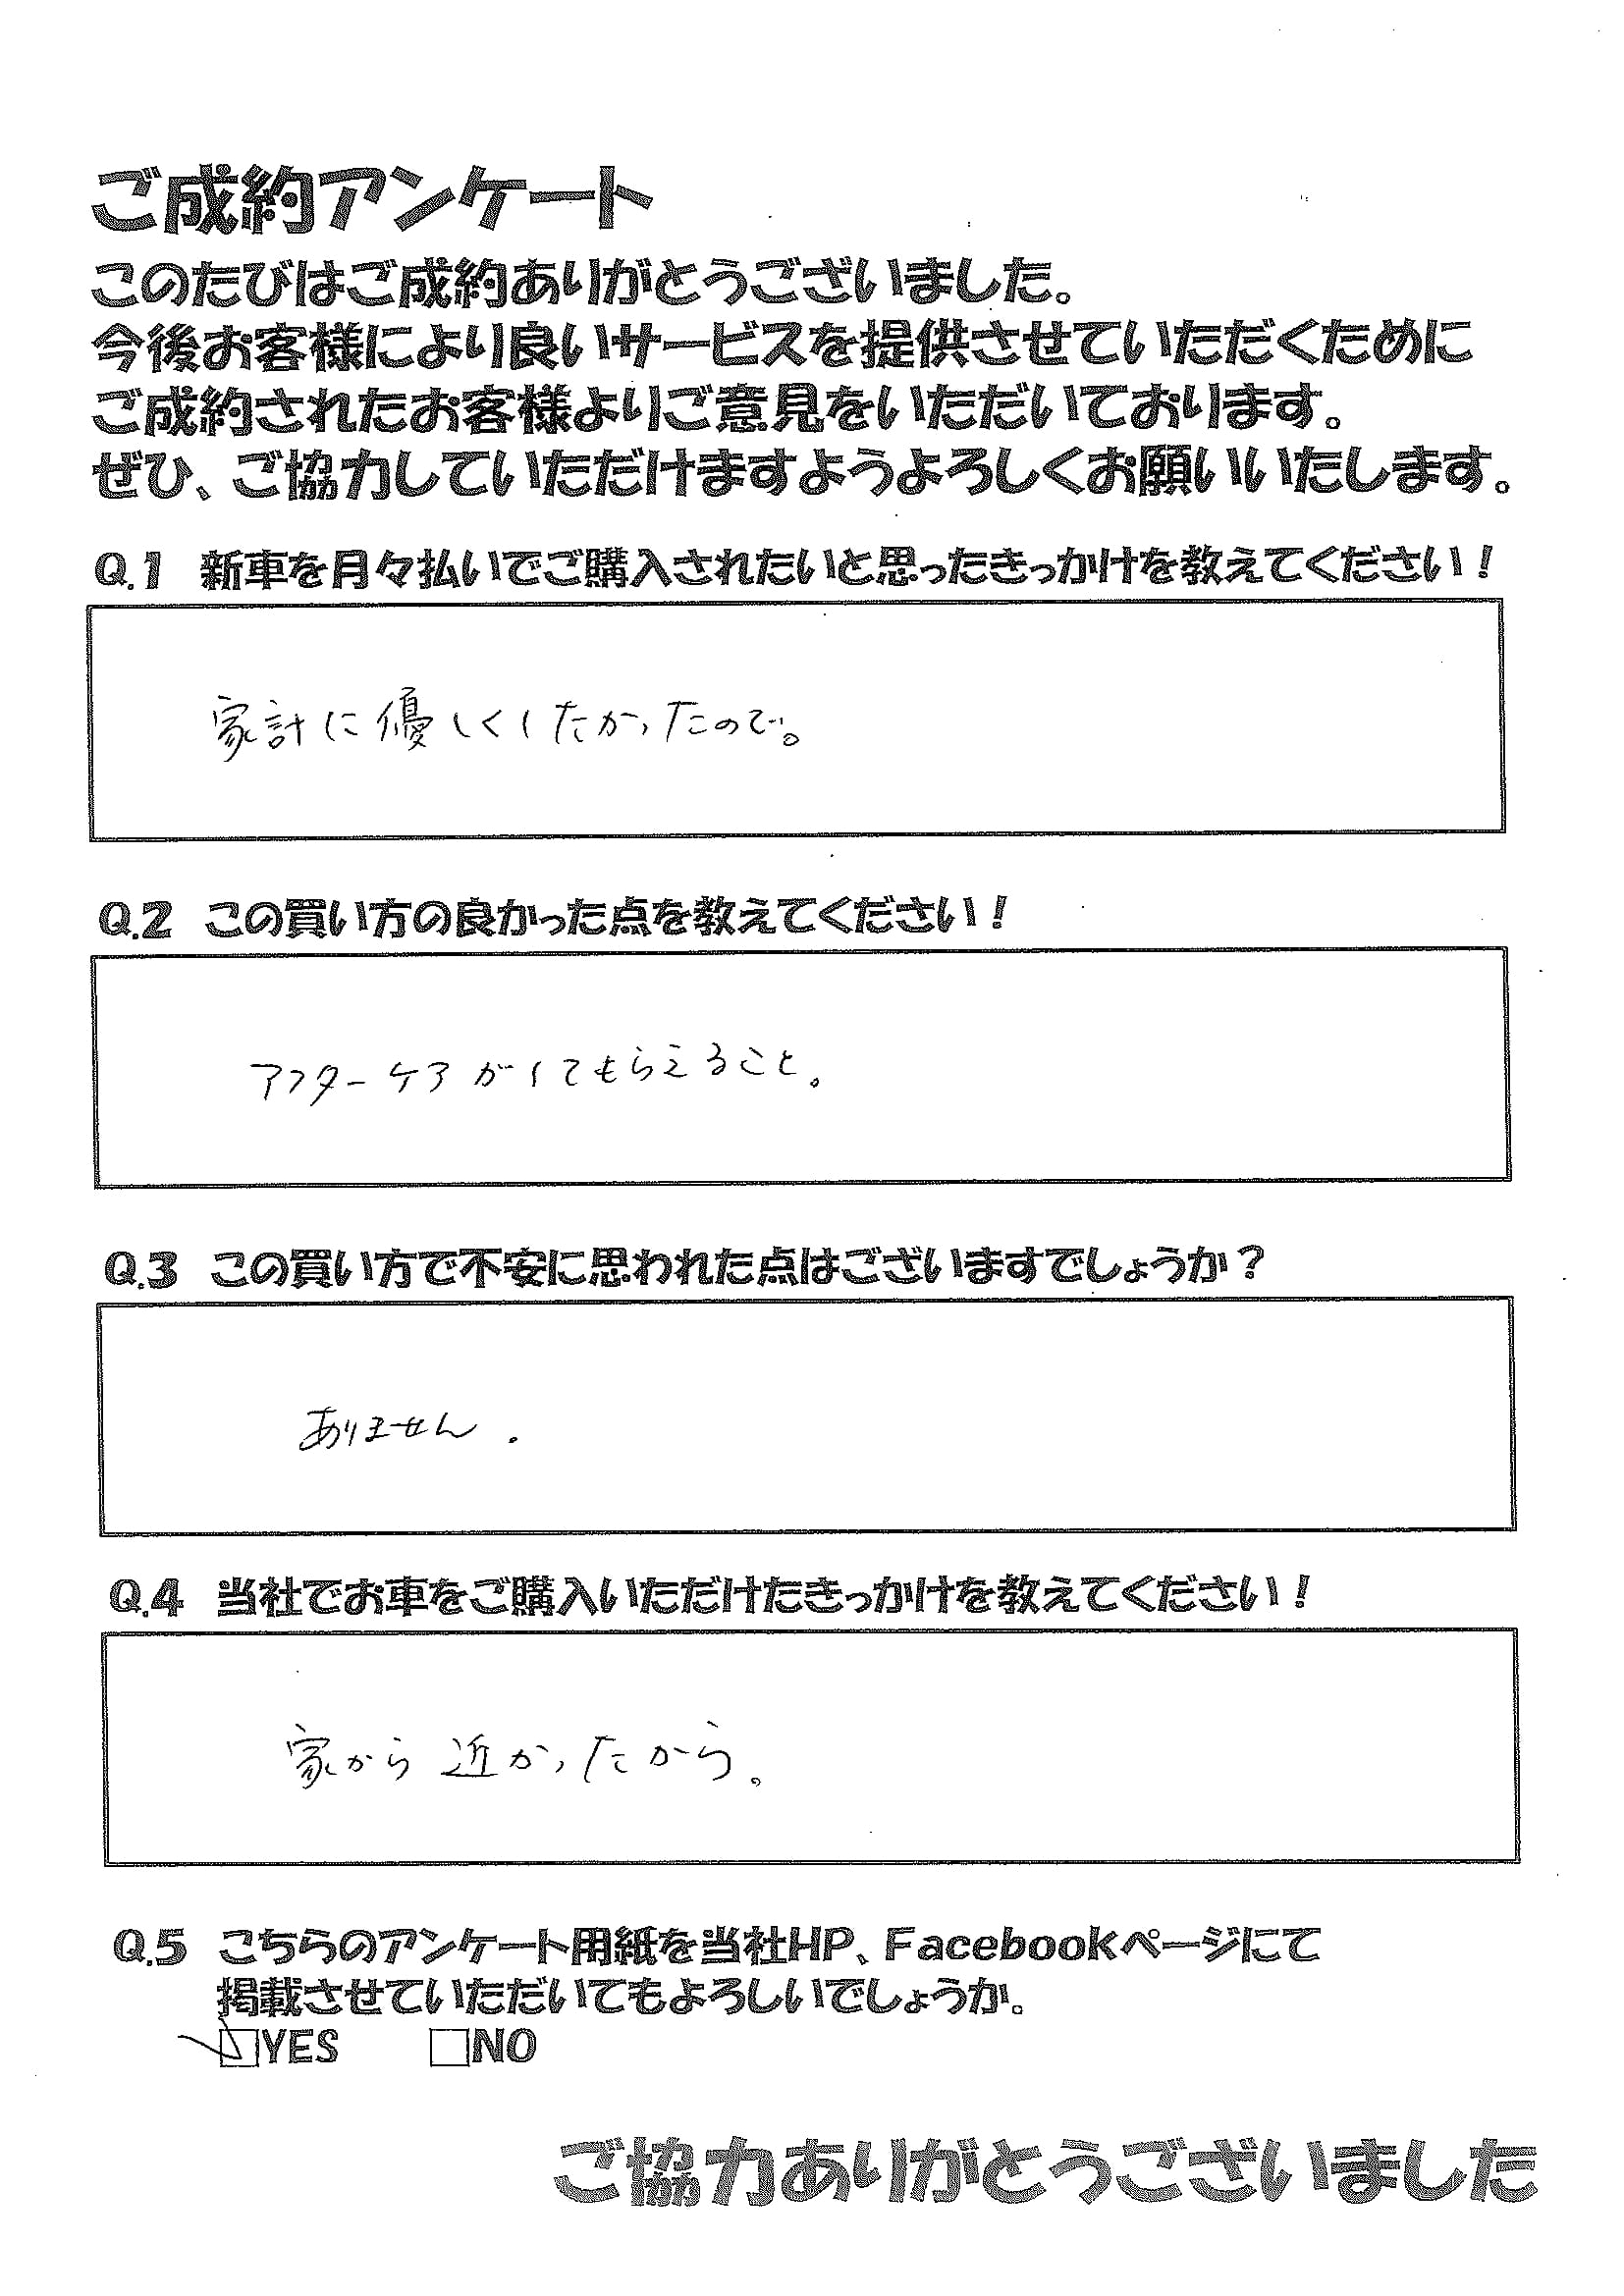 ご成約アンケート
このたびはご成約ありがとうございました。
今後お客様により良いサービスを提供させていただくために
ご成約されたお客様よりご意見をいただいております。
ぜひ、ご協力していただけますようよろしくお願いいたします。
Q.1 新車を月々払いでご購入されたいと思ったきっかけを教えてください！
家計に優しくしたかったので。
Q.2 この買い方の良かった点を教えてください！
アフターケアがしてもらえること。
Q.3 この買い方で不安に思われた点はございますでしょうか？
ありません.
Q.4 当社でお車をご購入いただけたきっかけを教えてください！
家から近かったから。
Q.5 こちらのアンケート用紙を当社HP、Facebookページにて
掲載させていただいてもよろしいでしょうか。
☑YES □NO
ご協力ありがとうございました